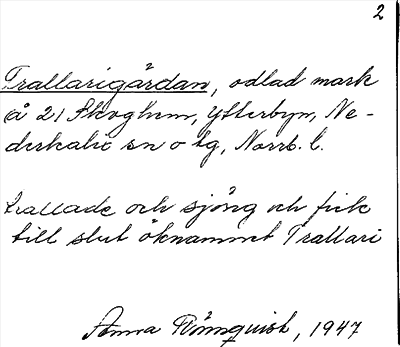 2
Trallarigårdan, odlad mark
å 21 Skoghem, Ytterbyn, Ne-
derkalix sn o tg, Norrb. l.
trallade och sjöng och fick
till slut öknamnet Trallari
Anna Rönnquist, 1947